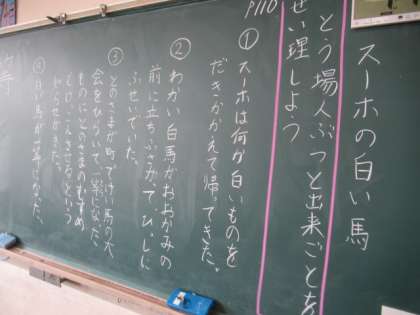 P110
スーホの白い馬
とう場人ぶつと出来ごとを
せい理しよう
①スーホは何か白いものを
だきかかえて帰ってきた。
②わかい白馬がおおかみの
前に立ちふさがってひっしに
ふせいでいた。
③とのさまが町でけい馬の大
会をひらいて一等になった
ものにとのさまのむすめと
けっこんさせるという
知らせがきた。
④白い馬が一等になった。